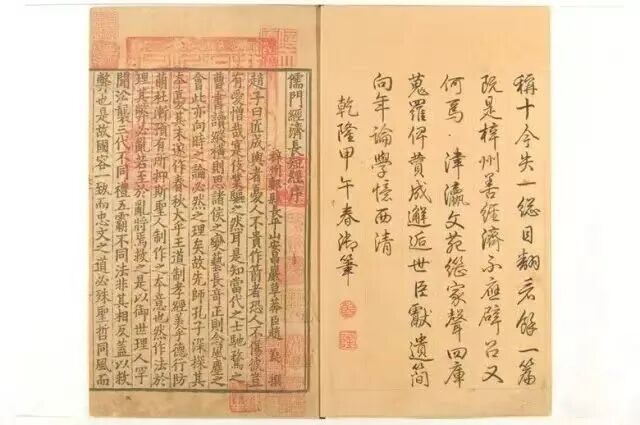 稱十今失一總目翻餘一篇
既是梓州善經濟不應辟召又
何焉津瀛文苑繼家聲四庫
蒐羅俾賁成邂逅世臣獻遺簡
向年論學憶西清
乾隆甲午春御筆
儒門經濟長短經序
梓州郪縣長平山安昌巖草莽臣趙蕤撰
趙子曰匠成輿者憂人不貴作箭者恐人不傷彼豈
有愛憎哉寔伎業驅之然耳是知當代之士馳騖之
曹書讀縱橫則思諸侯之變藝長奇正則念風塵之
會此亦向時之論必然之理矣故先師孔子深探其
本憂其末遂作春秋大乎王道制孝經美乎德行防
萌杜漸預有所抑斯聖人制作之本意也然作法於
理其弊必亂若至於亂將焉救之是以御世理人罕
聞沿襲三代不同禮五霸不同法非其相反蓋以救
弊也是故國容一致而忠文之道必殊聖哲同風而